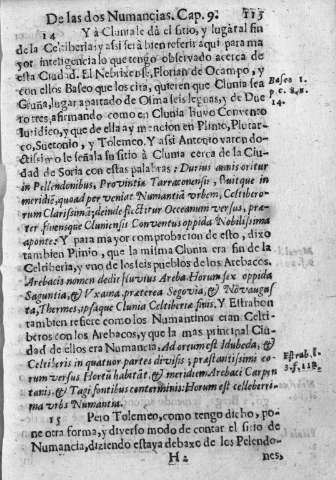 De las dos Numancias. Cap. 9. 115
14 Y à Clunia le dà el sitio, y lugar al fin
de la Celtiberia: y assi serà bien referir aqui para ma
yor inteligencia lo que tengo observado acerca de
esta Ciudad. El Nebrixense, Florian de Ocampo, y
con ellos Baseo que los cita, quieren que Clunia sea
Cruña, lugar apartado de Osma seis leguas, y de Due
ro tres, afirmando como en Clunia huvo Convento
Iuridico, y que de ella ay mencion en Plinio, Plutar-
co, Suetonio, y Tolemeo. Y assi Antonio varon do-
ctissimo le señala su sitio à Clunia cerca de la Ciu-
dad de Soria con estas palabras: Durius amnis oritur
in Pellendonibus, Provintia Tarraconensis, fluitque in
meridiē, quoad perveniat Numantiā vrbem, Celtibero-
rum Clarissimā; deinde flectitur Oceanum versus, præ-
ter finensque Cluniensis Conventus oppida Nobilissima
aponte: Y para mayor comprobacion de esto, dixo
tambien Plinio, que la misma Clunia era fin de la
Celtiberia, y vno de los seis pueblos de los Arebacos.
Arebacis nomen dedit fluvius Areba Horum sex oppida
Saguntia, & Vxama præterea Segovia, & Nōvaugus
ta, Thermes, ipsaque Clunia Celtiberiæ finis, Y Estrabon
tambien refiere como los Numantinos eran Celti-
beros con los Arebacos, y que la mas principal Ciu-
dad de ellos era Numancia. Ad orum est Idubeda, &
Celtiberis in quatuor partes divisis; præstantissimi eo-
rum versus Hortū habitāt. & meridiem Arebaci Carpyn
tanis, & Tagi fontibus contermini: Horum est celleberi-
ma vrbs Numantia.
15 Pero Tolemeo, como tengo dicho, po-
ne otra forma, y diverso modo de contar el sitio de
Numancia, diziendo estava debaxo de los Pelendo-
H2 nes,
Baseo 1.
p. c. 8. n.
14.
Estrab. l.
3. f. 118.